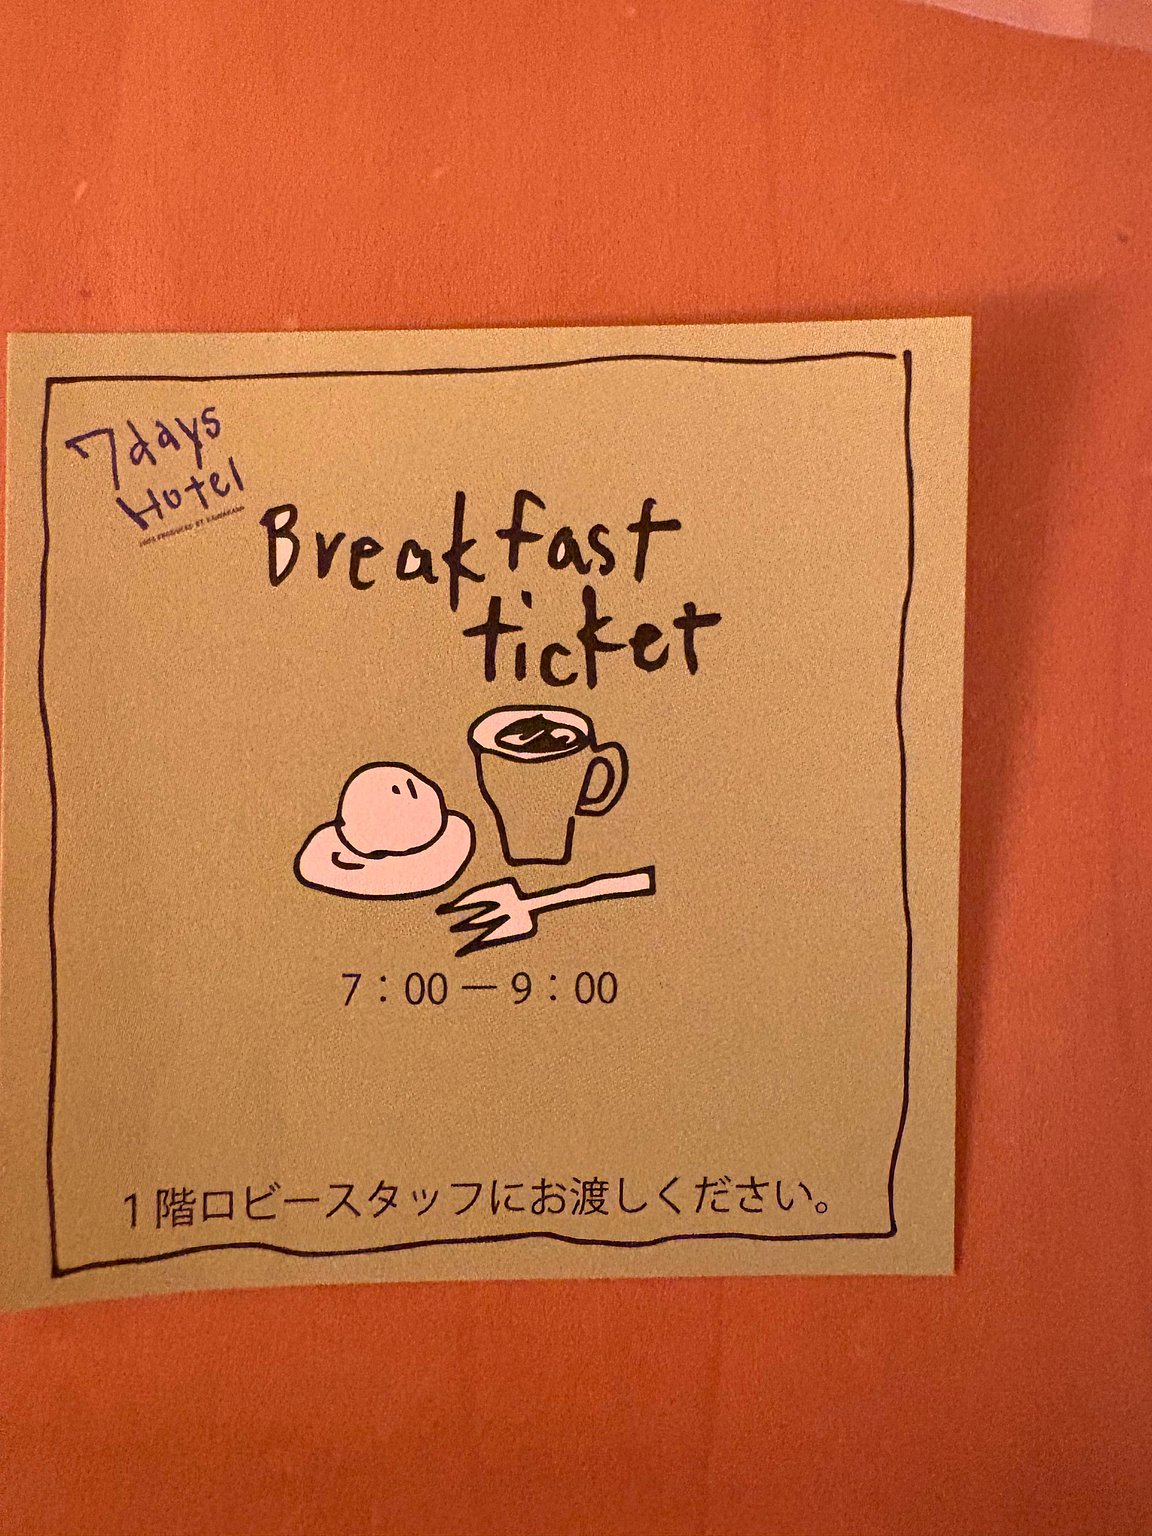 7days
Hotel
Breakfast
ticket
7：00 ― 9：00
1階ロビースタッフにお渡しください。